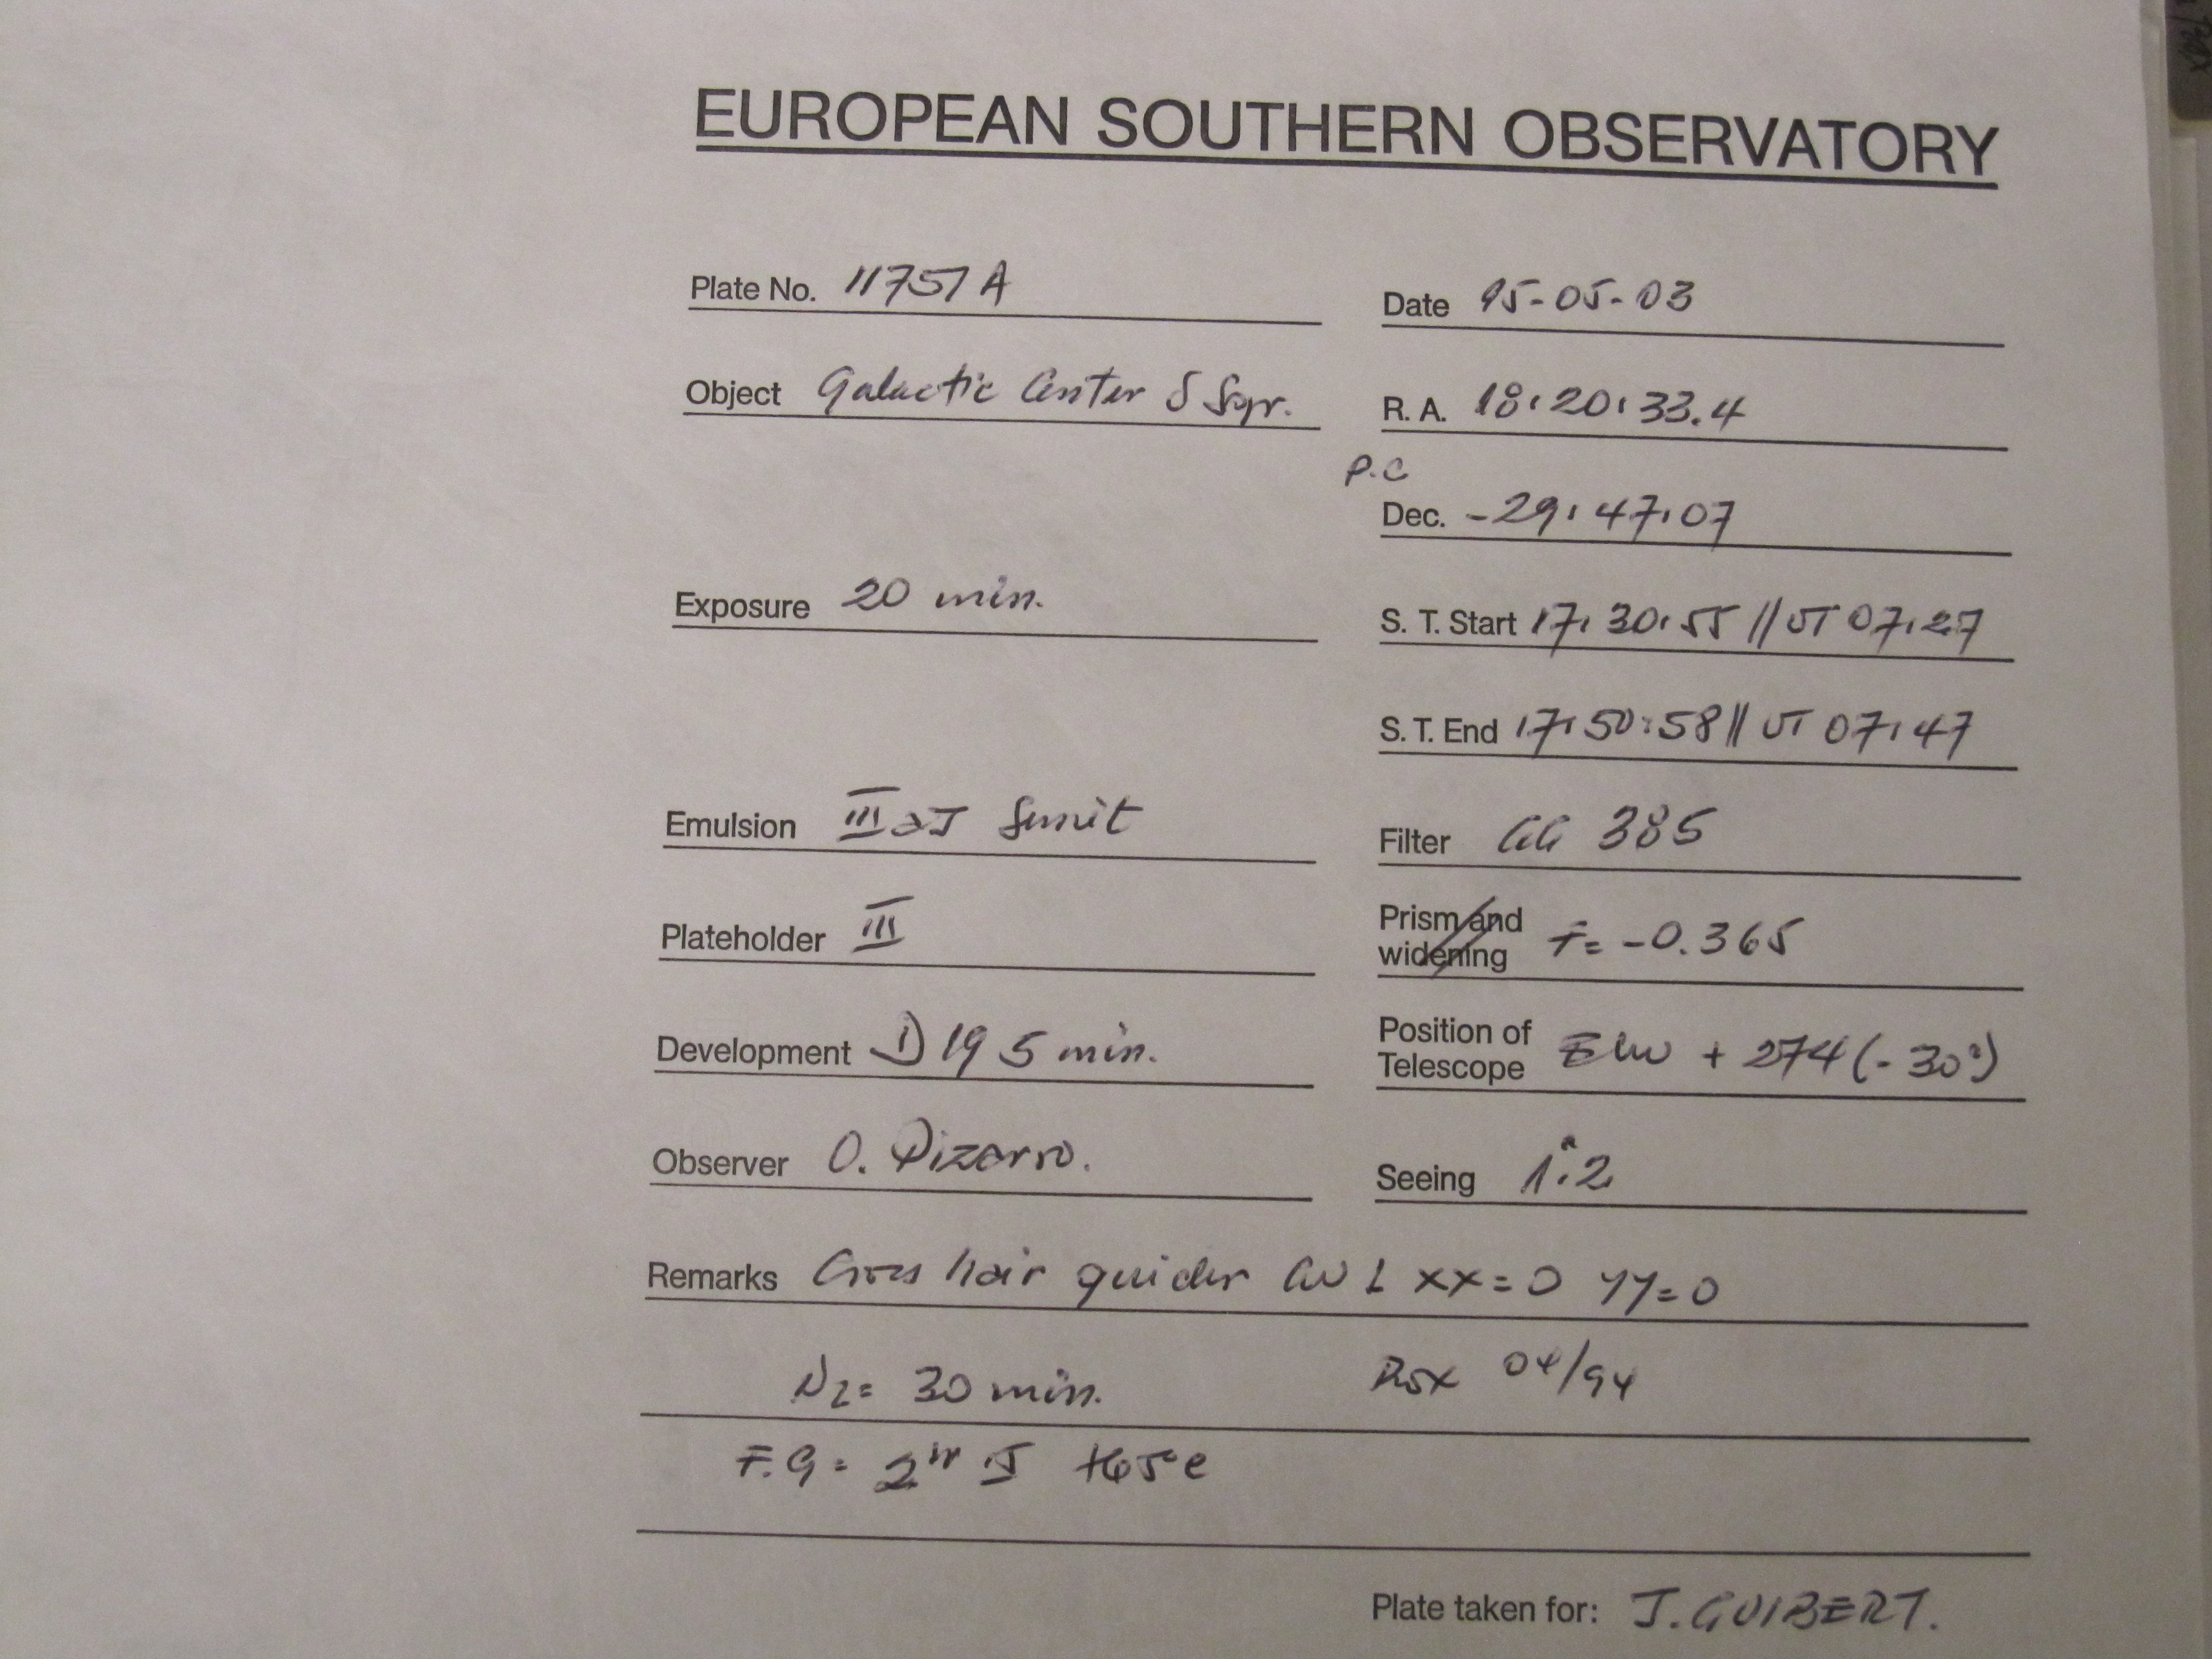 EUROPEAN SOUTHERN OBSERVATORY
Plate No. 11757 A
Date 95-05-03
Object Galactic Center δ Sgr.
R. A. 18:20:33.4
P.C
Dec. -29:47:07
Exposure 20 min.
S. T. Start 17:30:55 // UT 07:27
S. T. End 17:50:58 // UT 07:47
Emulsion III aJ
Filter GG 385
Plateholder III
Prism and widening F= -0.365
Development D 19 5 min.
Position of Telescope + 274 (-30°)
Observer O. Pizarro.
Seeing 1".2
Remarks Cross hair guider xx=0 yy=0
N2= 30 min.
Box 04/94
F.G =
Plate taken for: J. GUIBERT.